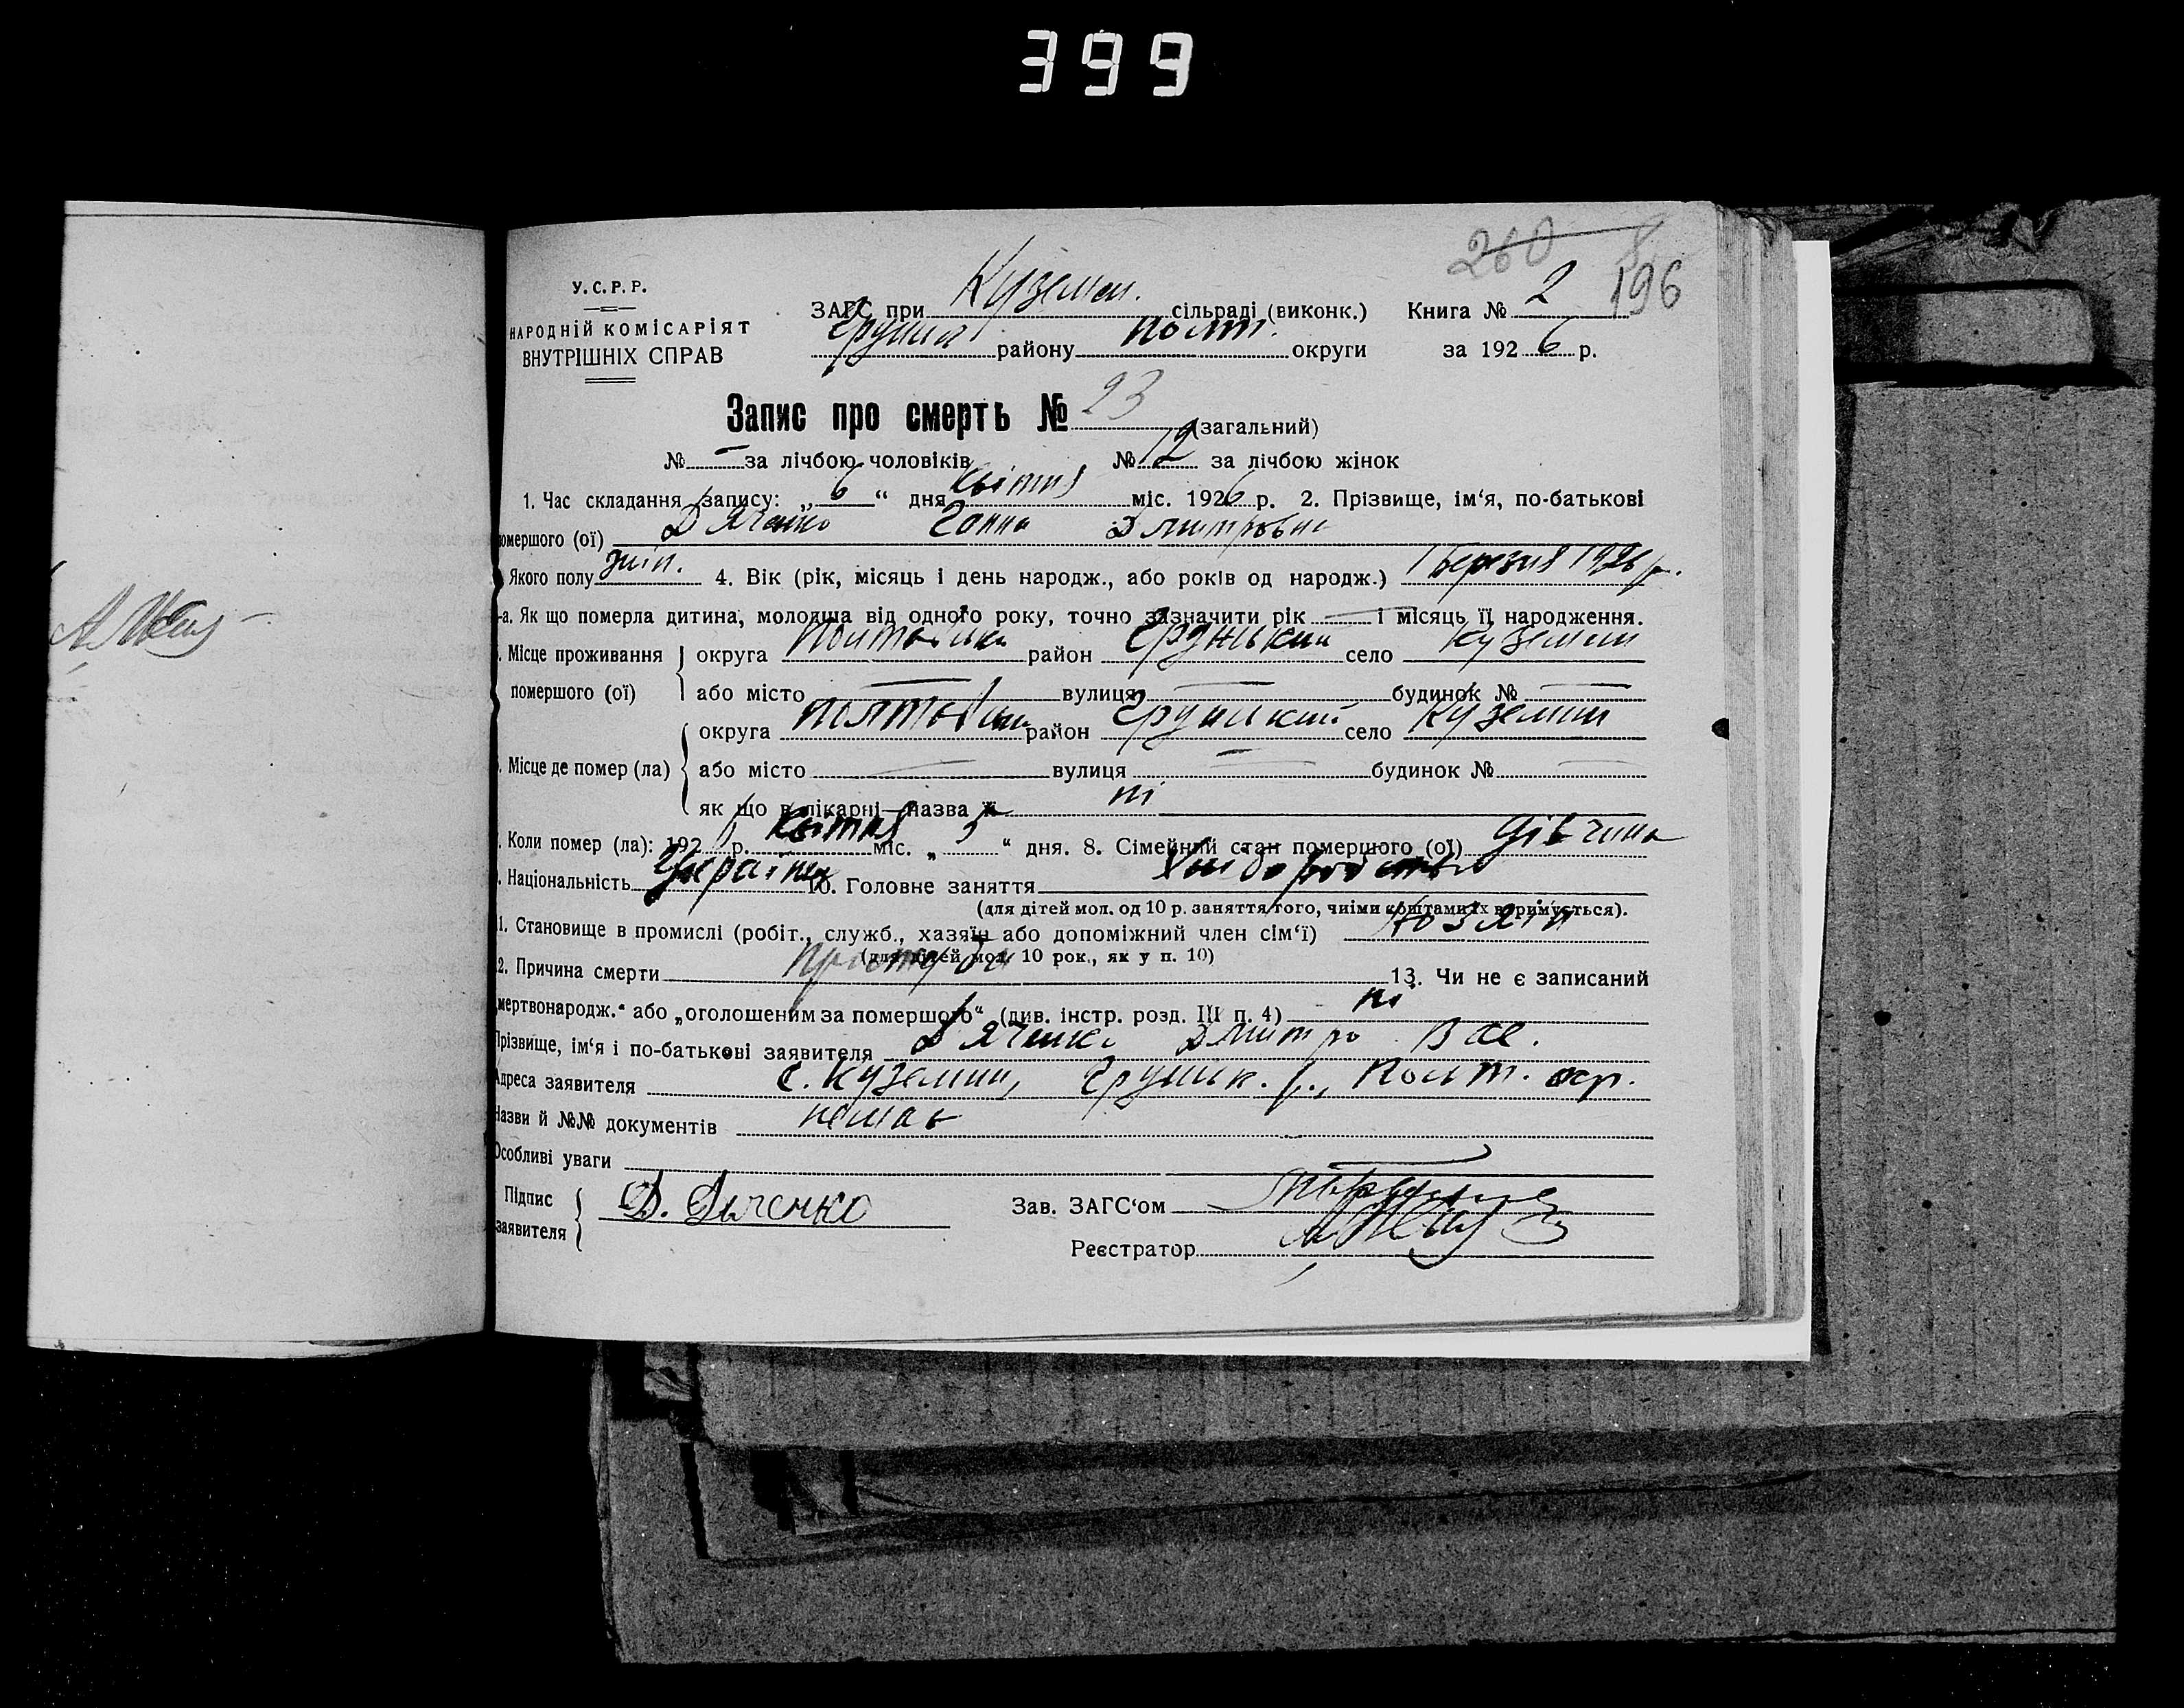 399
260
196
У.С.Р.Р.
НАРОДНІЙ КОМІСАРІЯТ
ВНУТРІШНІХ СПРАВ
ЗАГС при Куземен. сільраді (виконк.) Книга № 2
Грунсь. району Полт. округи за 1926 р.
Запис про смерть № 23 (загальний)
№ — за лічбою чоловіків № 12 за лічбою жінок
1. Час складання запису: „6“ дня Квітня міс. 1926 р. 2. Прізвище, ім‘я, по-батькові
омершого (ої) Дяченко Ганна Дмитровна
Якого полу жін. 4. Вік (рік, місяць і день народж., або років од народж.) 1 березня 1926 р.
-а. Як що померла дитина, молодша від одного року, точно зазначити рік — і місяць її народження.
Місце проживання округа Полтавська район Грунський село Куземин
помершого (ої) або місто — вулиця — будинок № —
округа Полтавська район Грунський село Куземин
Місце де помер (ла) або місто — вулиця — будинок № —
як що в лікарні—назва її ні
Коли помер (ла): 1926 р. Квітня міс. „5“ дня. 8. Сімейний стан помершого (ої) дівчина
Національність Українка 10. Головне заняття Хліборобство
(для дітей мол. од 10 р. заняття того, чиїми коштами їх втримується).
1. Становище в промислі (робіт., служб., хазяїн або допоміжний член сім‘ї) Хозяїн
(для дітей мол. 10 рок., як у п. 10)
2. Причина смерти Простуда 13. Чи не є записаний
мертвонародж.“ або „оголошеним за помершого“ (див. інстр. розд. III п. 4) ні
Прізвище, ім‘я і по-батькові заявителя Дяченко Дмитро Вас.
Адреса заявителя с. Куземин, Грунськ. р., Полт. окр.
Назви й №№ документів немає
Особливі уваги —
Підпис заявителя Д. Дяченко Зав. ЗАГС‘ом
Реєстратор